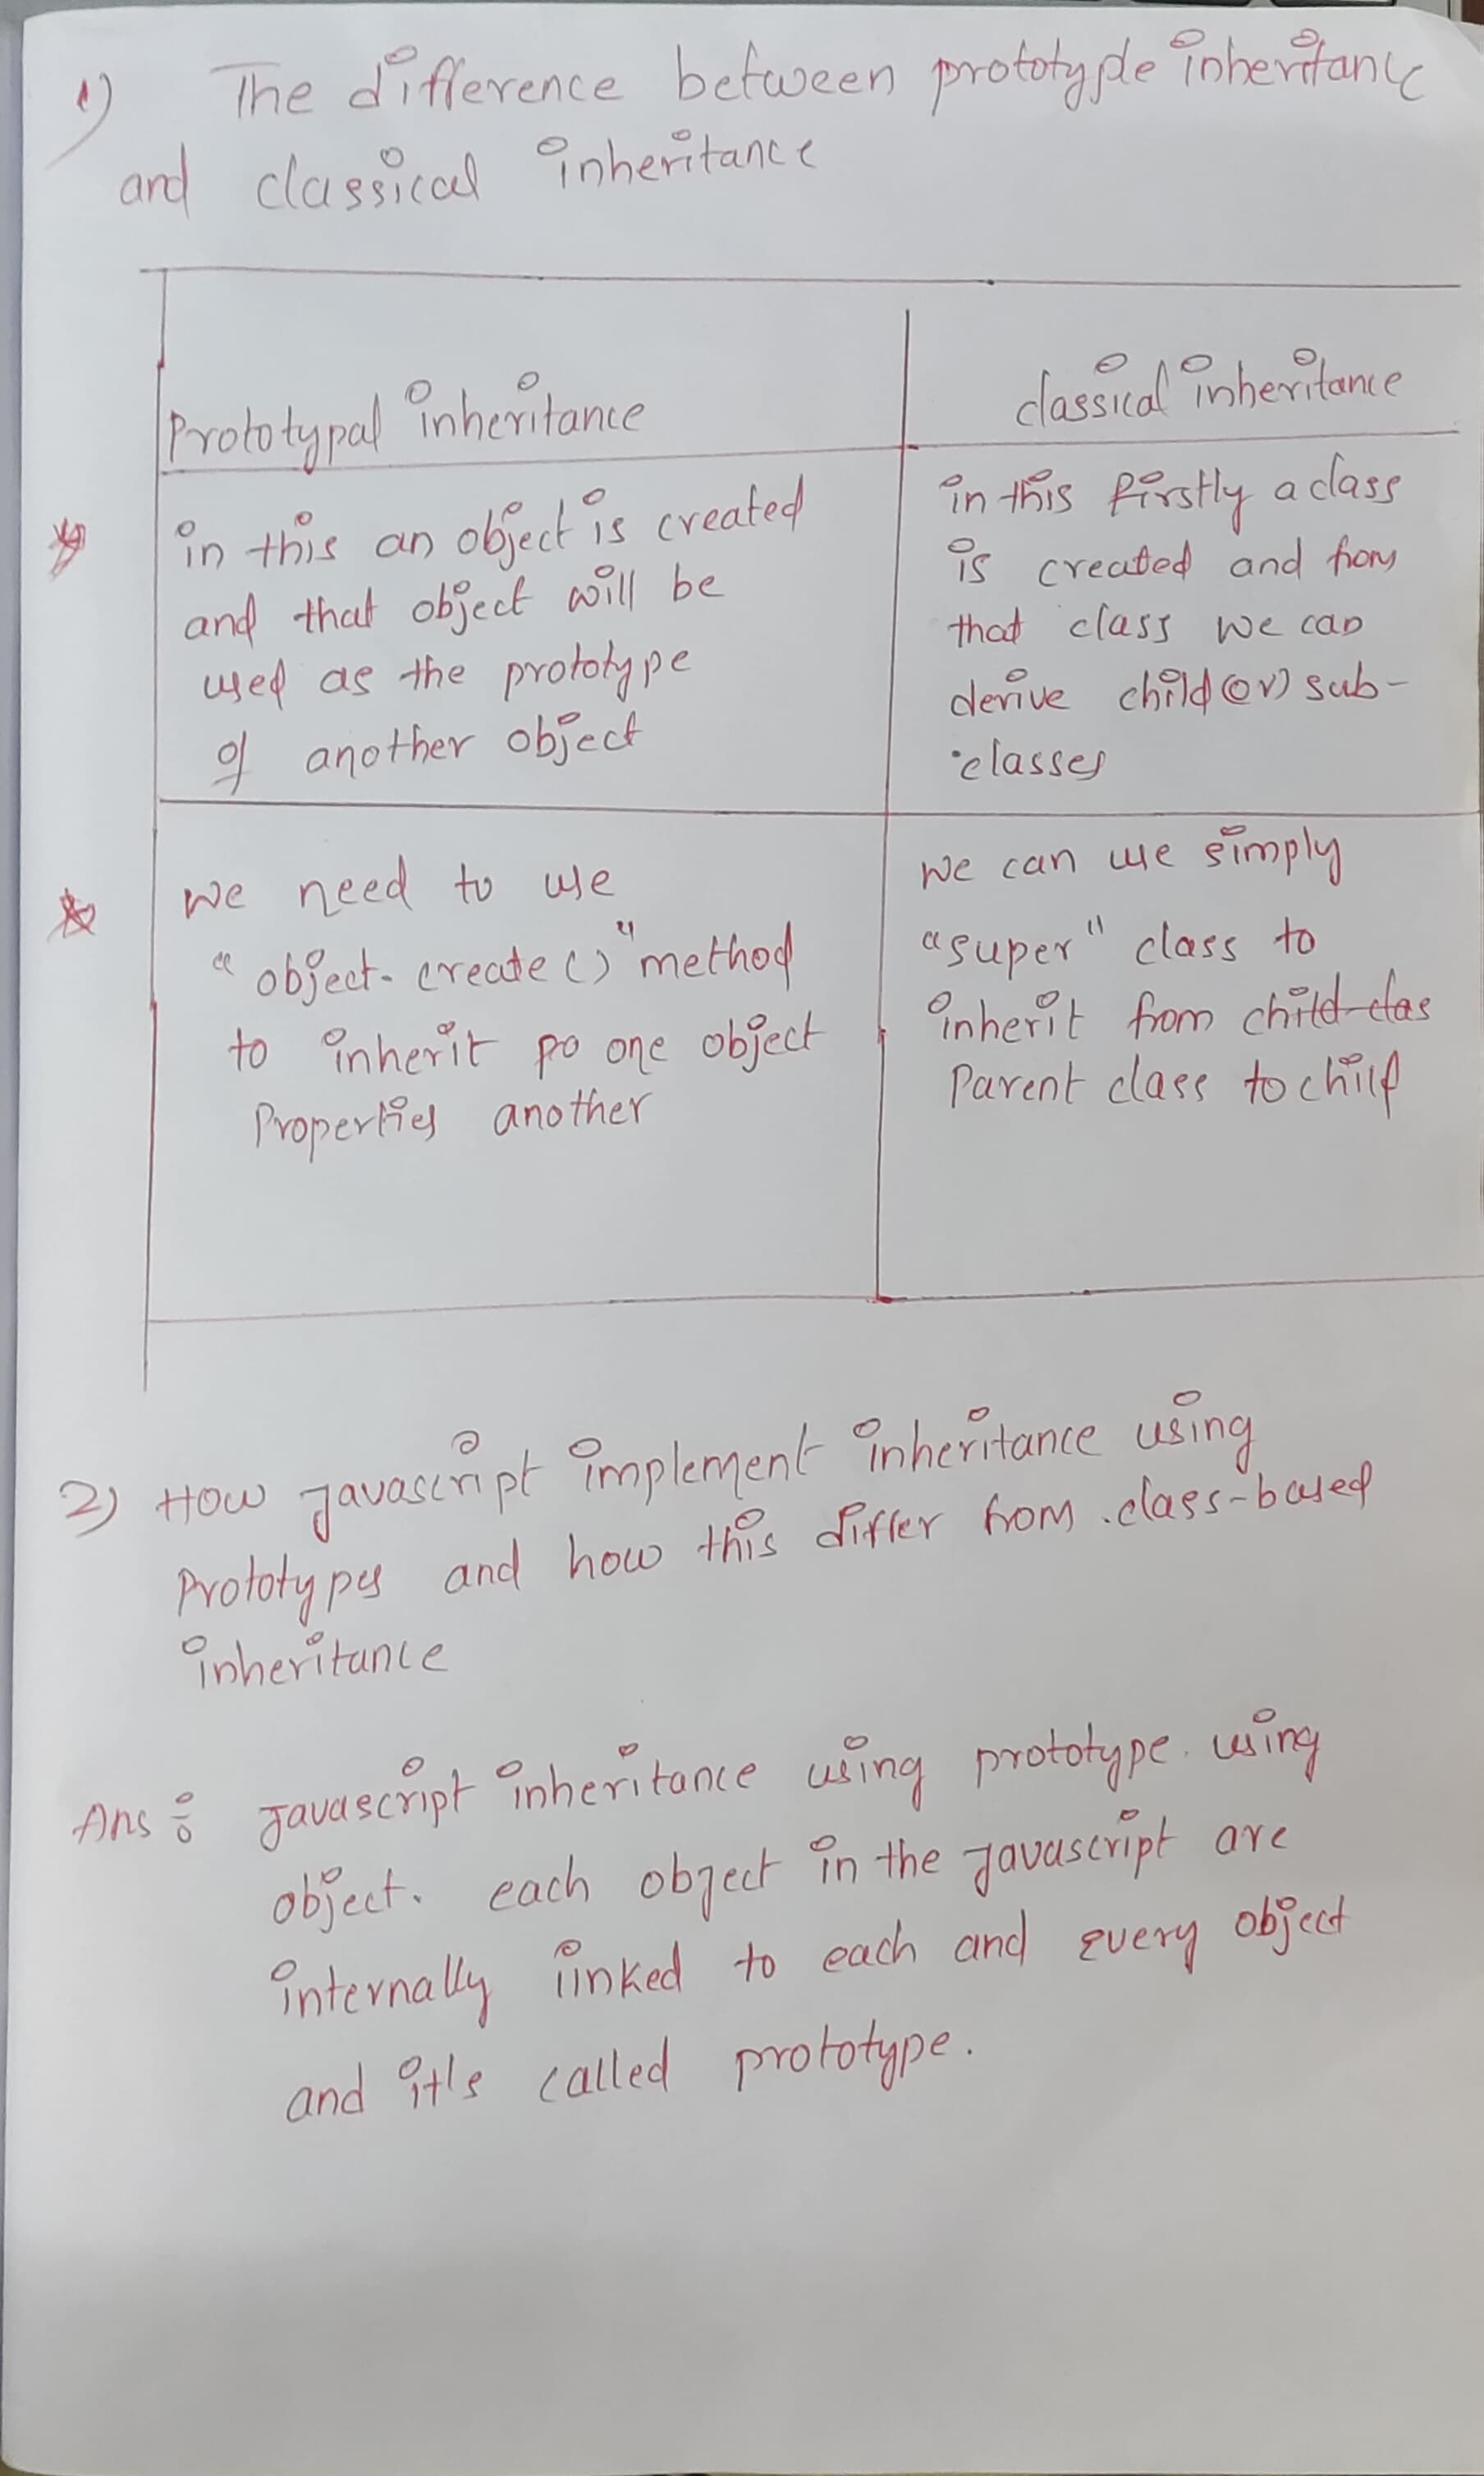 1) The difference between prototype inheritance
and classical inheritance
Prototypal inheritance
classical inheritance
in this an object is created
and that object will be
used as the prototype
of another object
in this firstly a class
is created and from
that class we can
derive child (or) sub-
classes
we need to use
"object. create ()" method
to inherit po one object
Properties another
we can use simply
"super" class to
inherit from child clas
Parent class to child
2) How javascript implement inheritance using
Prototypes and how this differ from class-based
inheritance
Ans: javascript inheritance using prototype. using
object. each object in the javascript are
internally linked to each and every object
and it's called prototype.